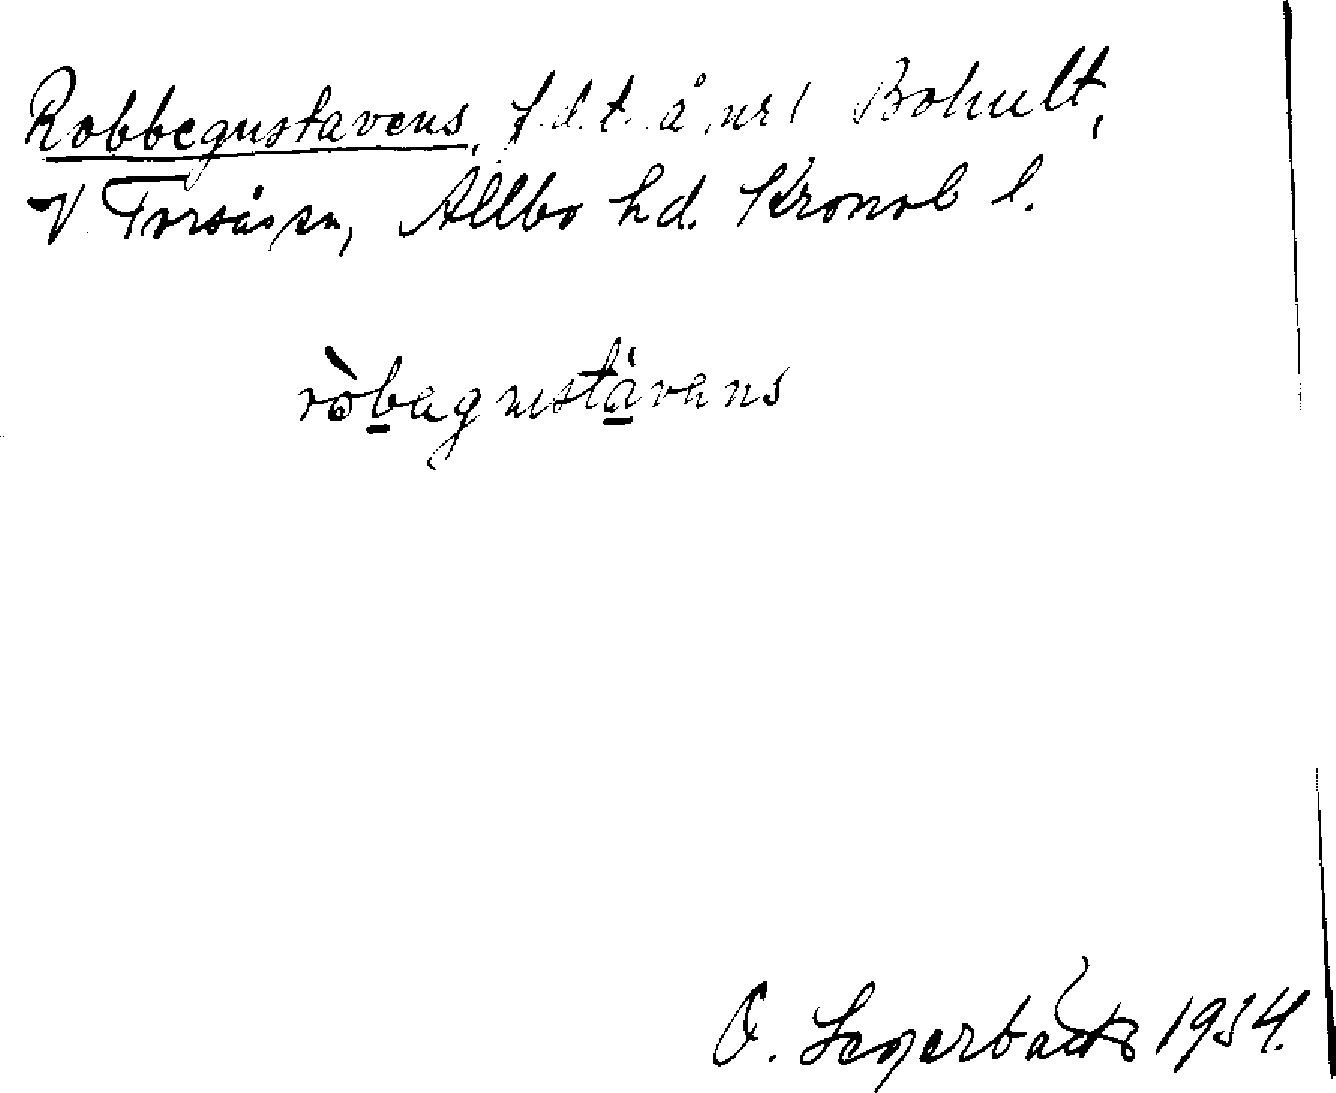 Robbegustavens, f.d.t. å nr 1 Bohult,
V Torsås sn, Allbo hd. Kronob l.
ròbagustávans
O. Segerbäck 1934.